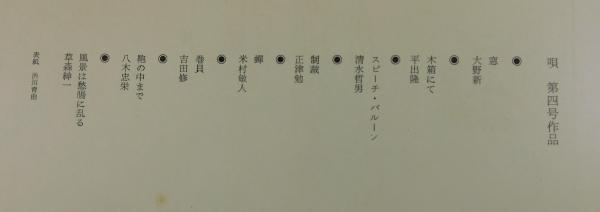 唄 第四号作品
◉
窓
大野新
◉
木箱にて
平出隆
◉
スピーチ・バルーン
清水哲男
◉
制裁
正津勉
◉
蟬
米村敏人
◉
巻貝
吉田修
◉
鞄の中まで
八木忠栄
◉
風景は愁腸に乱る
草森紳一
表紙 渋川育由